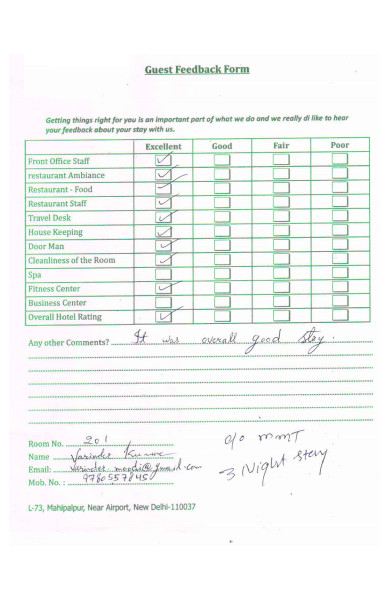 Guest Feedback Form
Getting things right for you is an important part of what we do and we really di like to hear
your feedback about your stay with us.
Excellent Good Fair Poor
Front Office Staff
restaurant Ambiance
Restaurant - Food
Restaurant Staff
Travel Desk
House Keeping
Door Man
Cleanliness of the Room
Spa
Fitness Center
Business Center
Overall Hotel Rating
Any other Comments? It was overall good stay.
Room No. 201
Name Varinder
Email: @gmail.com
Mob. No. : 9780557845
c/o MMT
3 Night stay
L-73, Mahipalpur, Near Airport, New Delhi-110037